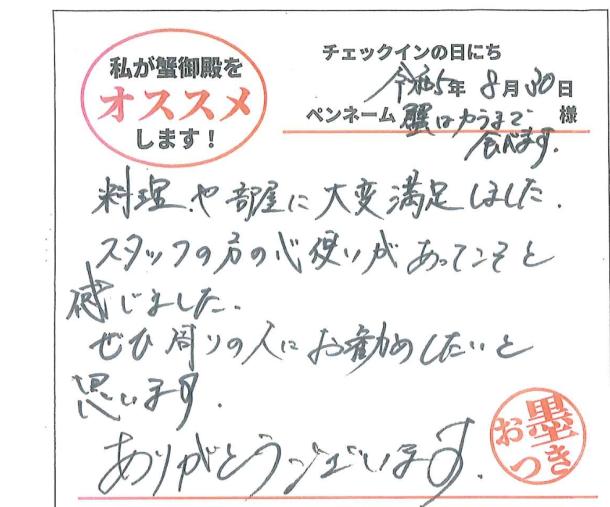 私が蟹御殿を
オススメ
します！
チェックインの日にち
令和5年 8月30日
ペンネーム 蟹はカラまで 様
食べます.
料理や部屋に大変満足しました.
スタッフの方の心使いがあってこそと
感じました.
ぜひ周りの人にお勧めしたいと
思います.
ありがとうございます.
お墨
つき